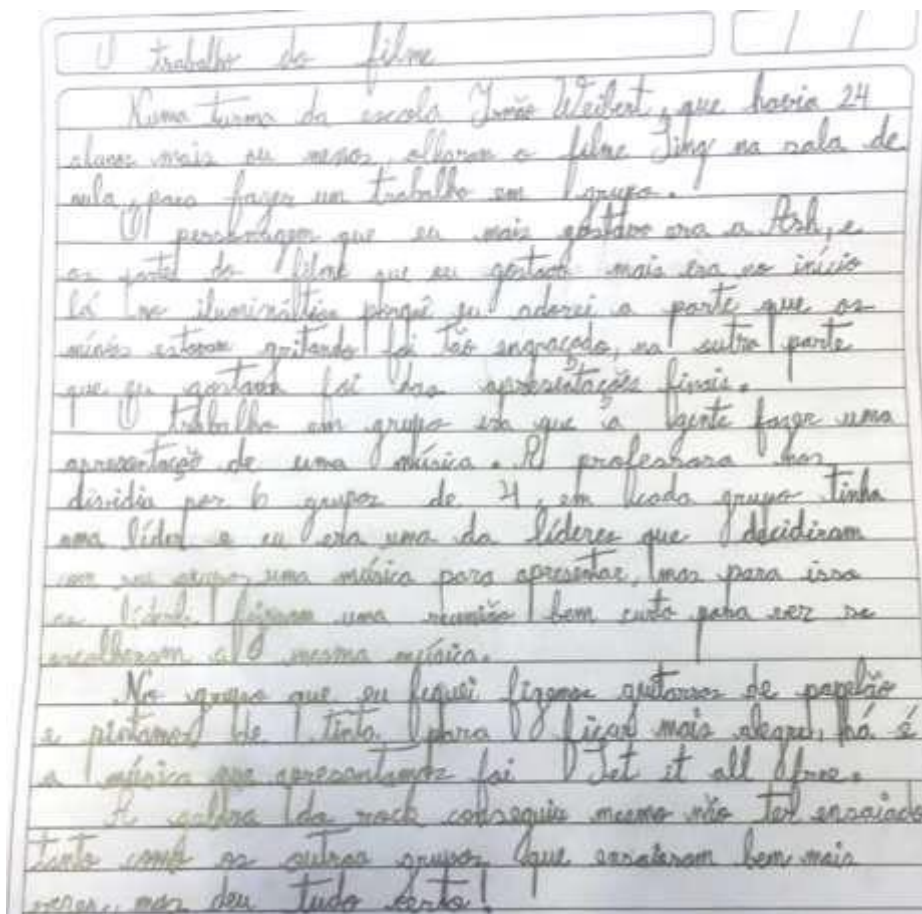 O trabalho do filme
Numa turma da escola Irmão Weibert, que havia 24
alunos mais ou menos, olharam o filme Sing na sala de
aula, para fazer um trabalho em grupo.
O personagem que eu mais gostava era a Ash, e
as partes do filme que eu gostava mais era no início
lá no porquê eu adorei a parte que os
estavam gritando foi tão engraçado, na outra parte
que eu gostava foi das apresentações finais.
O trabalho em grupo era que a gente fazer uma
apresentação de uma música. A professora nos
dividiu por 6 grupos de 4, em cada grupo tinha
uma líder e eu era uma da líderes que decidiram
com seu grupo uma música para apresentar, mas para isso
as líderes fizeram uma reunião bem curta para ver se
escolheram a mesma música.
No grupo que eu fiquei fizemos guitarras de papelão
e pintamos de tinta para ficar mais alegre, há é
a música que apresentamos foi Set it all free.
A galera do rock conseguiu mesmo não ter ensaiado
tanto como os outros grupos que ensaiaram bem mais
vezes, mas deu tudo certo!